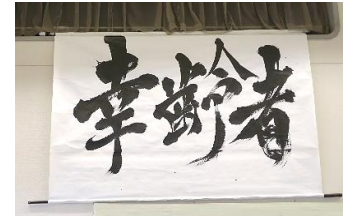 幸齢者